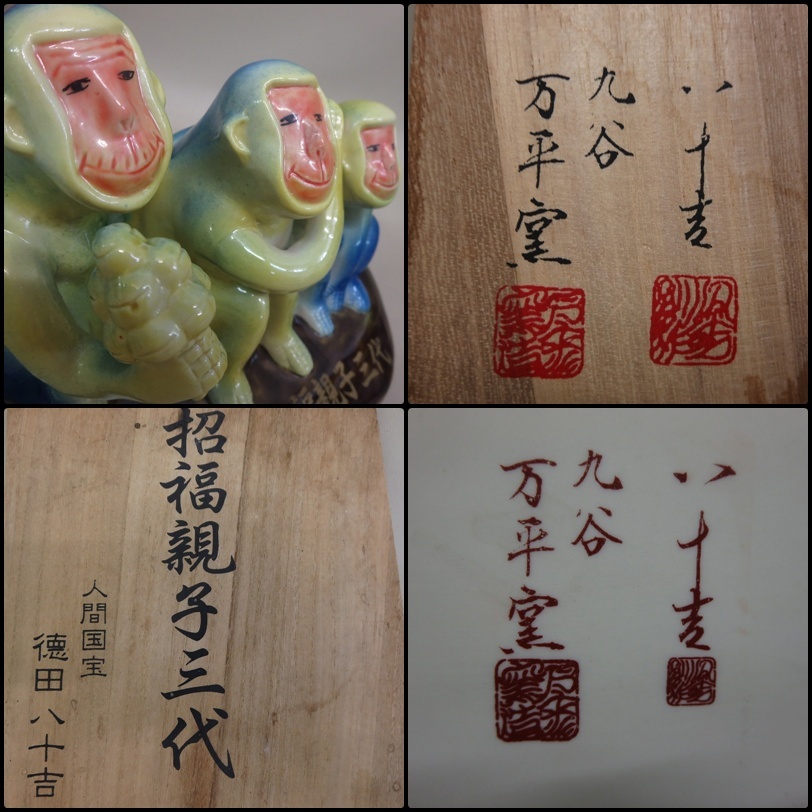 福親子三代
八十吉
九谷
万平窯
招福親子三代
人間国宝
徳田八十吉
八十吉
九谷
万平窯